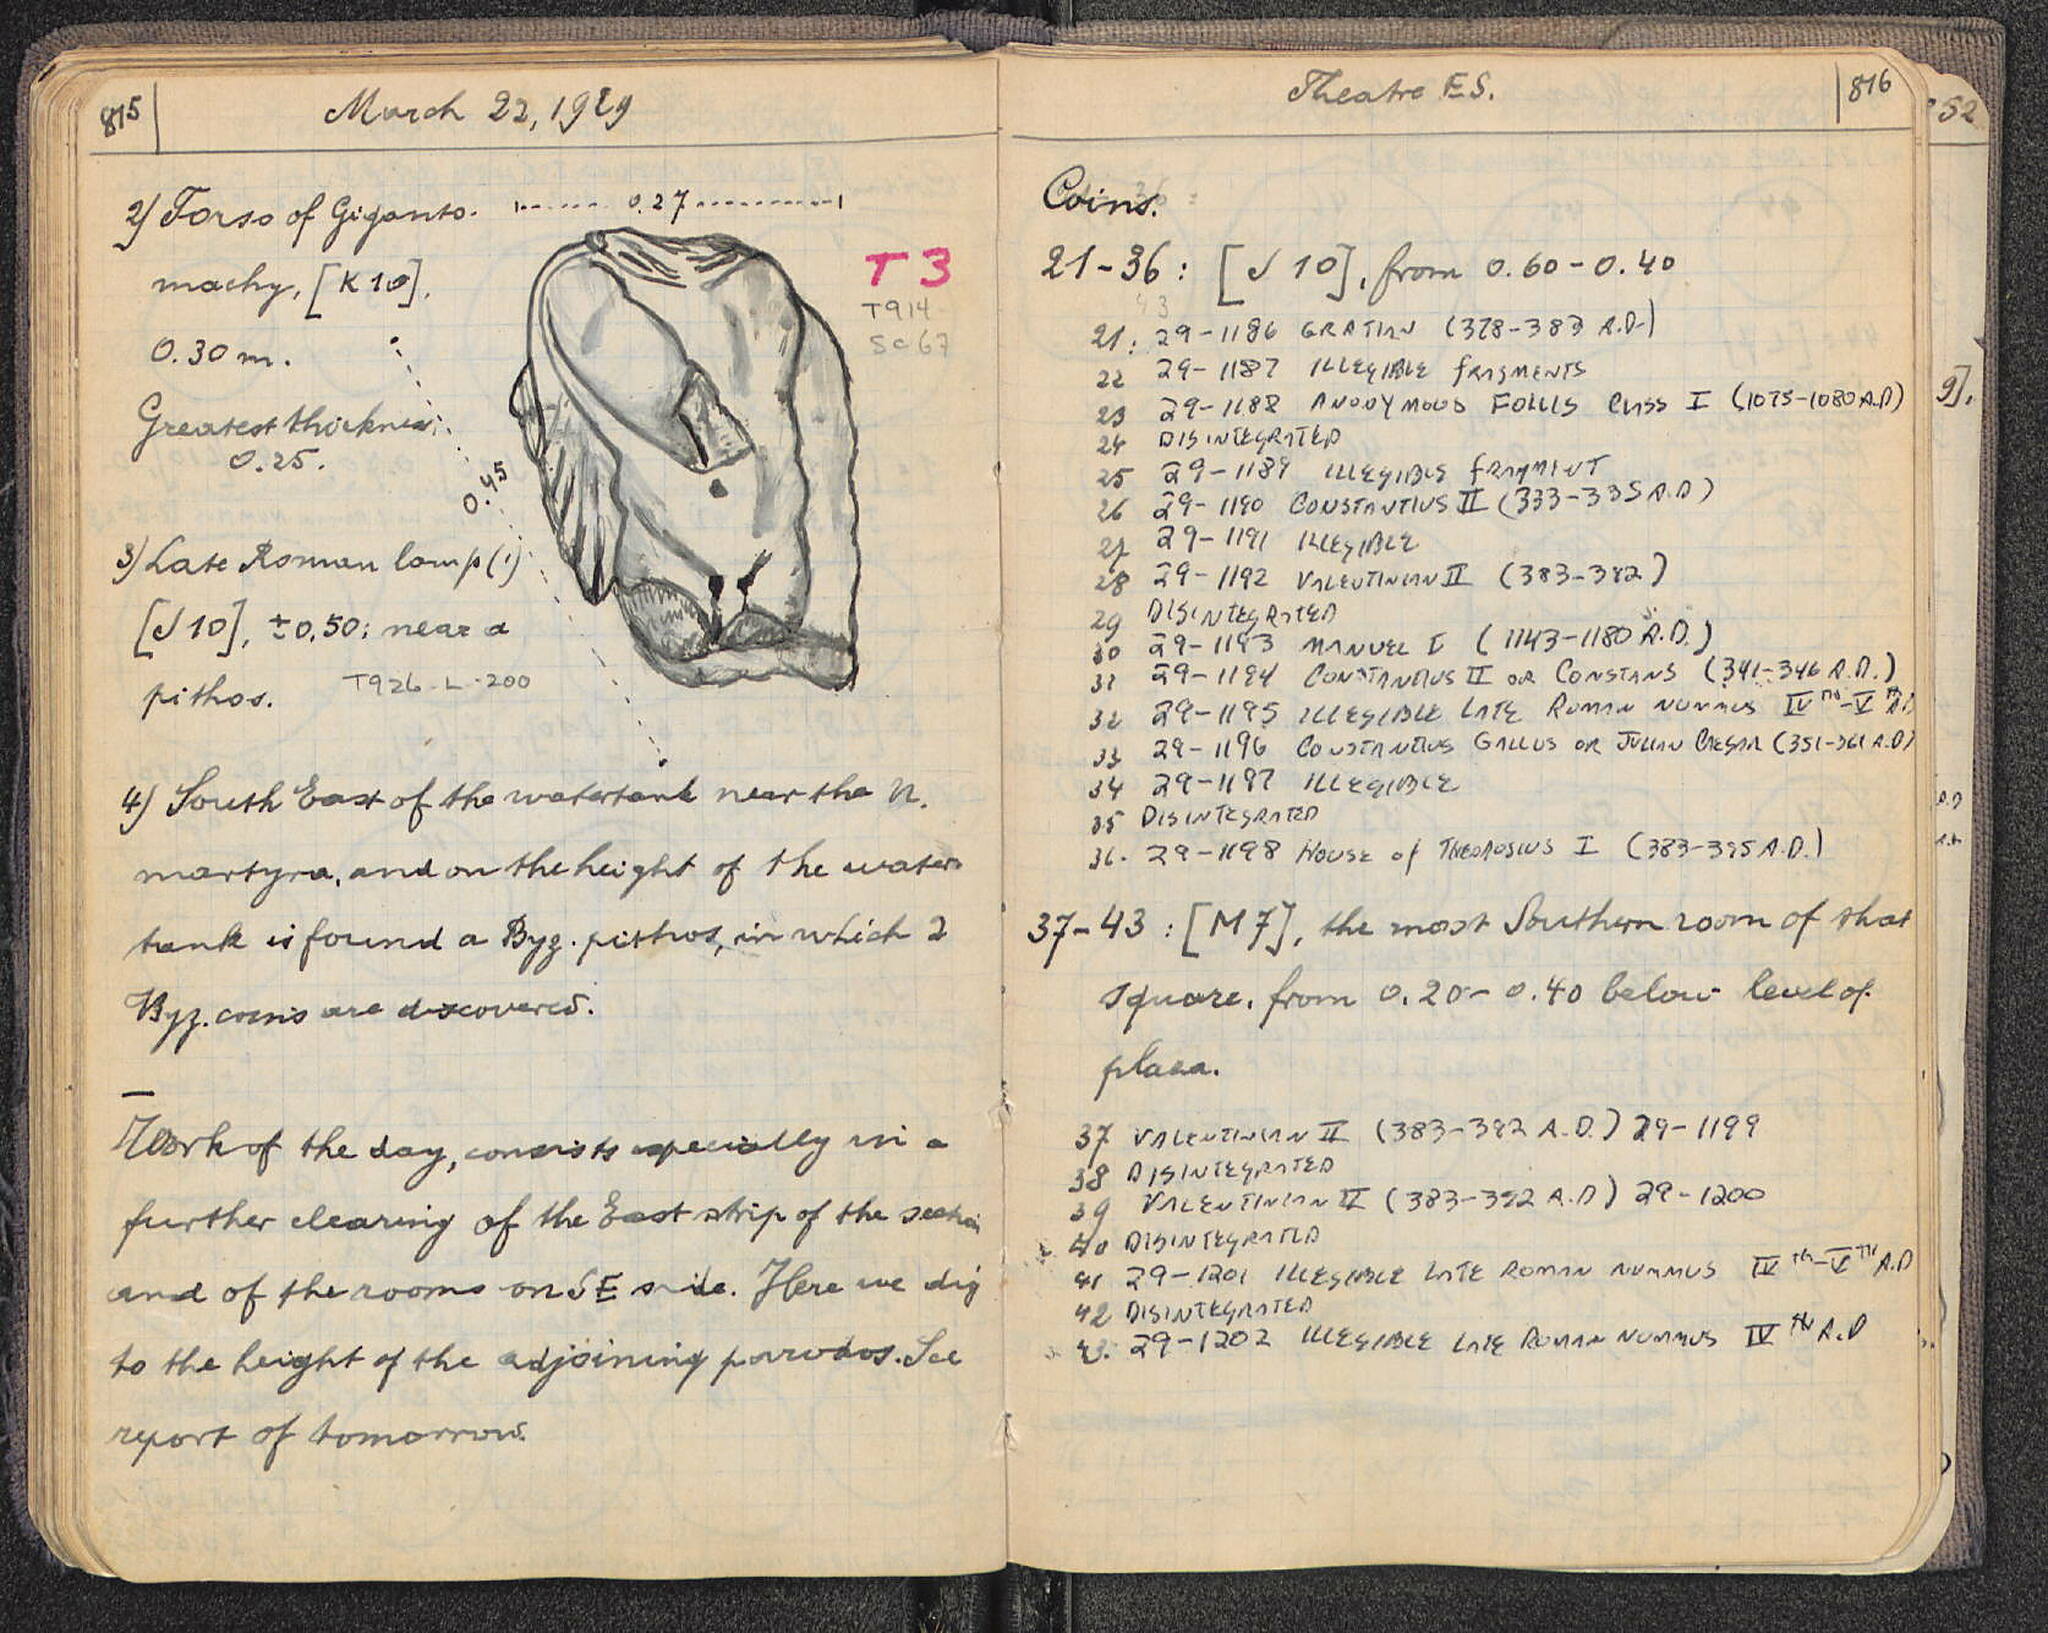 815
March 22, 1929
2) Torso of Giganto-
machy, [K 10],
0.30 m.
Greatest thickness:
0.25.
0.27
0.45
T 3
T914
Sc 67
3) Late Roman lamp (!)
[J 10], ±0.50; near a
pithos.
T926-L-200
4) South East of the watertank near the N.
martyra, and on the height of the water-
tank is found a Byz. pithos, in which 2
Byz. coins are discovered.
—
Work of the day, consists especially in a
further clearing of the East strip of the section
and of the rooms on SE side. Here we dig
to the height of the adjoining parodos. See
report of tomorrow.
Theatre E.S.
816
Coins.
21-36: [J 10], from 0.60-0.40
21: 29-1186 GRATIAN (378-383 A.D.)
22 29-1187 ILLEGIBLE FRAGMENTS
23 29-1188 ANONYMOUS FOLLIS CLASS I (1075-1080 A.D)
24 DISINTEGRATED
25 29-1189 ILLEGIBLE FRAGMENT
26 29-1190 CONSTANTIUS II (333-335 A.D)
27 29-1191 ILLEGIBLE
28 29-1192 VALENTINIAN II (383-392)
29 DISINTEGRATED
30 29-1193 MANUEL I (1143-1180 A.D.)
31 29-1194 CONSTANTIUS II OR CONSTANS (341-346 A.D.)
32 29-1195 ILLEGIBLE LATE ROMAN NUMMUS IVTH-VTH AD
33 29-1196 CONSTANTIUS GALLUS OR JULIAN CAESAR (351-361 A.D)
34 29-1197 ILLEGIBLE
35 DISINTEGRATED
36. 29-1198 HOUSE OF THEODOSIUS I (383-395 A.D.)
37-43: [M 7], the most Southern room of that
square, from 0.20-0.40 below level of
plaea.
37 VALENTINIAN II (383-392 A.D.) 29-1199
38 DISINTEGRATED
39 VALENTINIAN II (383-392 A.D) 29-1200
40 DISINTEGRATED
41 29-1201 ILLEGIBLE LATE ROMAN NUMMUS IVTH-VTH A.D
42 DISINTEGRATED
43. 29-1202 ILLEGIBLE LATE ROMAN NUMMUS IVTH A.D
52
9],
A.D